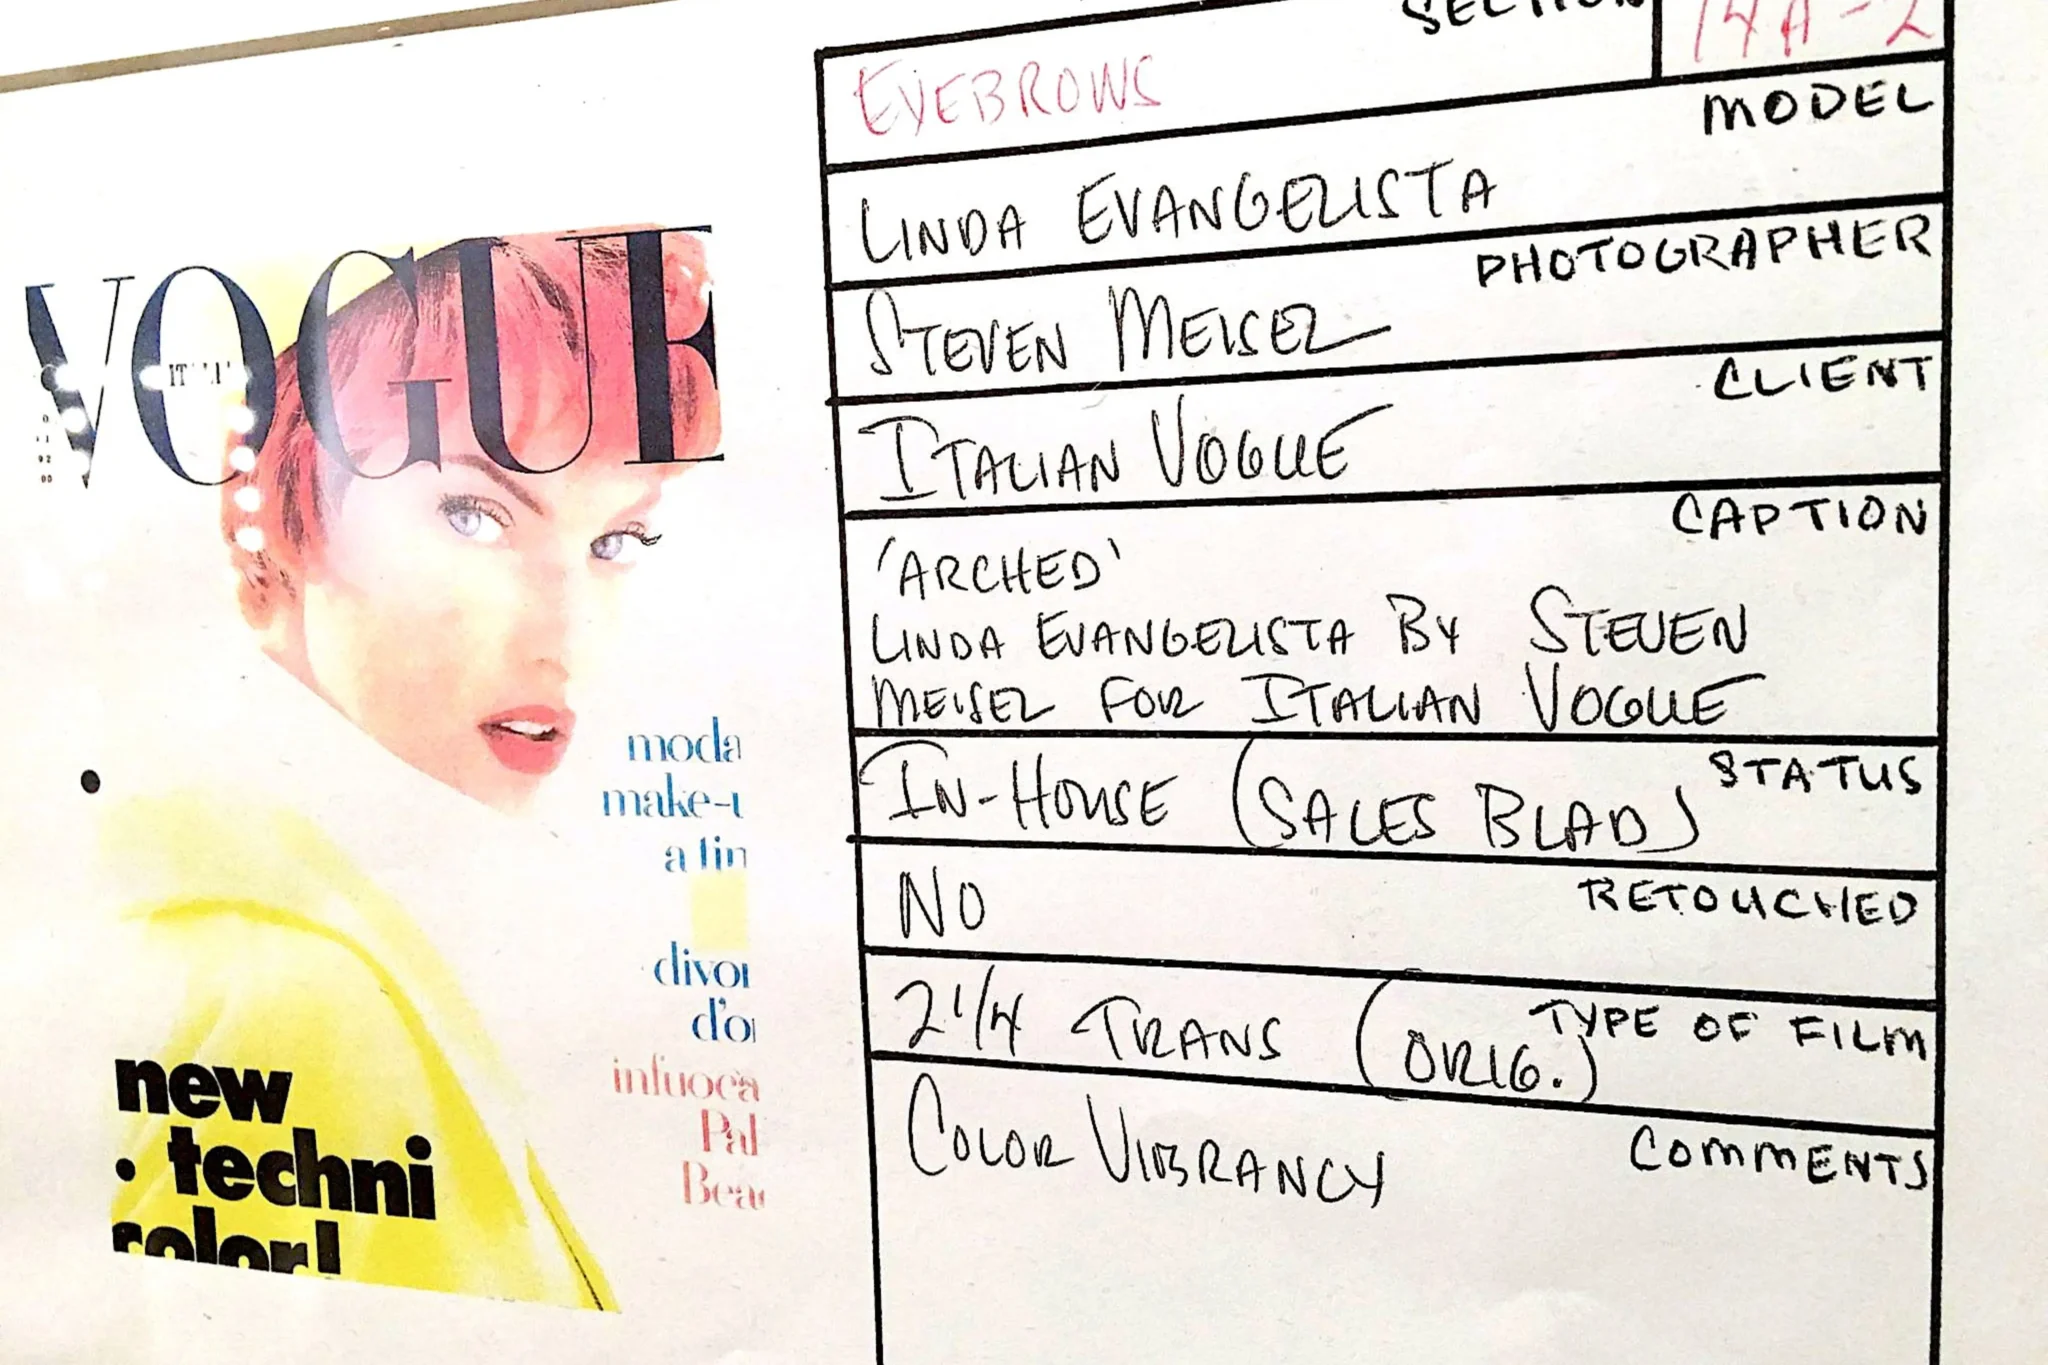 VOGUE
new
. techni
color!
moda
make-u
a tin
divor
d'or
infuoca
Pal
Beac
SECTION
14A-2
EYEBROWS
MODEL
LINDA EVANGELISTA
PHOTOGRAPHER
STEVEN MEISEL
CLIENT
ITALIAN VOGUE
CAPTION
'ARCHED'
LINDA EVANGELISTA BY STEVEN
MEISEL FOR ITALIAN VOGUE
STATUS
IN-HOUSE (SALES BLAD)
RETOUCHED
NO
TYPE OF FILM
2 1/4 TRANS (ORIG.)
COMMENTS
COLOR VIBRANCY